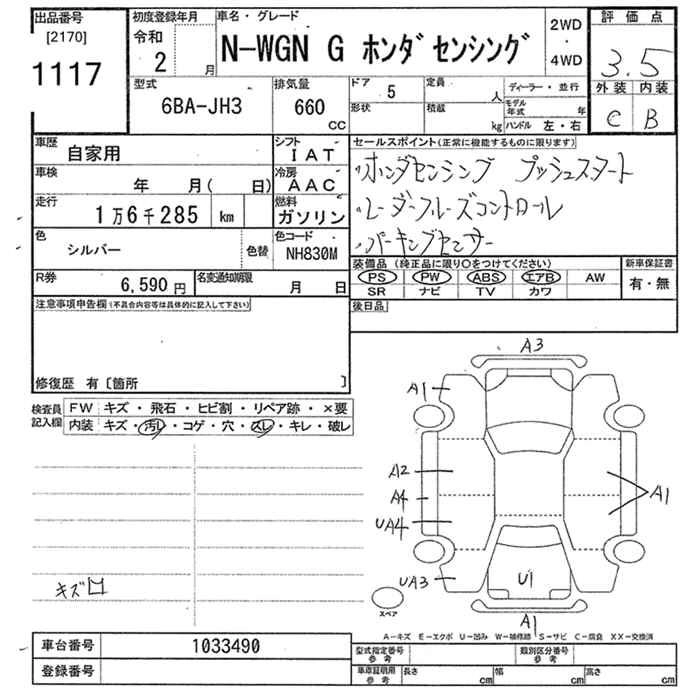 出品番号
[2170]
1117
初度登録年月
令和
2 月
車名・グレード
N-WGN G ホンダセンシング
2WD
・
4WD
評価点
3.5
外装 内装
C B
型式
6BA-JH3
排気量
660
CC
ドア 5
形状
定員 人
積載 kg
ディーラー・並行
モデル年式 年
ハンドル 左・右
車歴
自家用
シフト
IAT
車検
年 月( 日)
冷房
AAC
走行
1万6千285 km
燃料
ガソリン
色
シルバー
色替
色コード
NH830M
R券
6,590円
名変通知期限
月 日
セールスポイント(正常に機能するものに限ります)
ホンダセンシング プッシュスタート
レーダークルーズコントロール
パーキングセンサー
装備品(純正品に限り○をつけてください)
PS PW ABS エアB AW
SR ナビ TV カワ
新車保証書
有・無
後日品
注意事項申告欄(不具合内容等は具体的に記入して下さい)
修復歴 有〔箇所 〕
検査員記入欄
FW キズ・飛石・ヒビ割・リペア跡・×要
内装 キズ・汚レ・コゲ・穴・スレ・キレ・破レ
キズ
A3
A1
A2
A4
UA4
UA3
A1
U1
A1
スペア
A−キズ E−エクボ U−凹み W−補修跡 S−サビ C−腐食 XX−交換済
車台番号
1033490
登録番号
型式指定番号
参考
類別区分番号
参考
車車証明用
参考
長さ cm
幅 cm
高さ cm